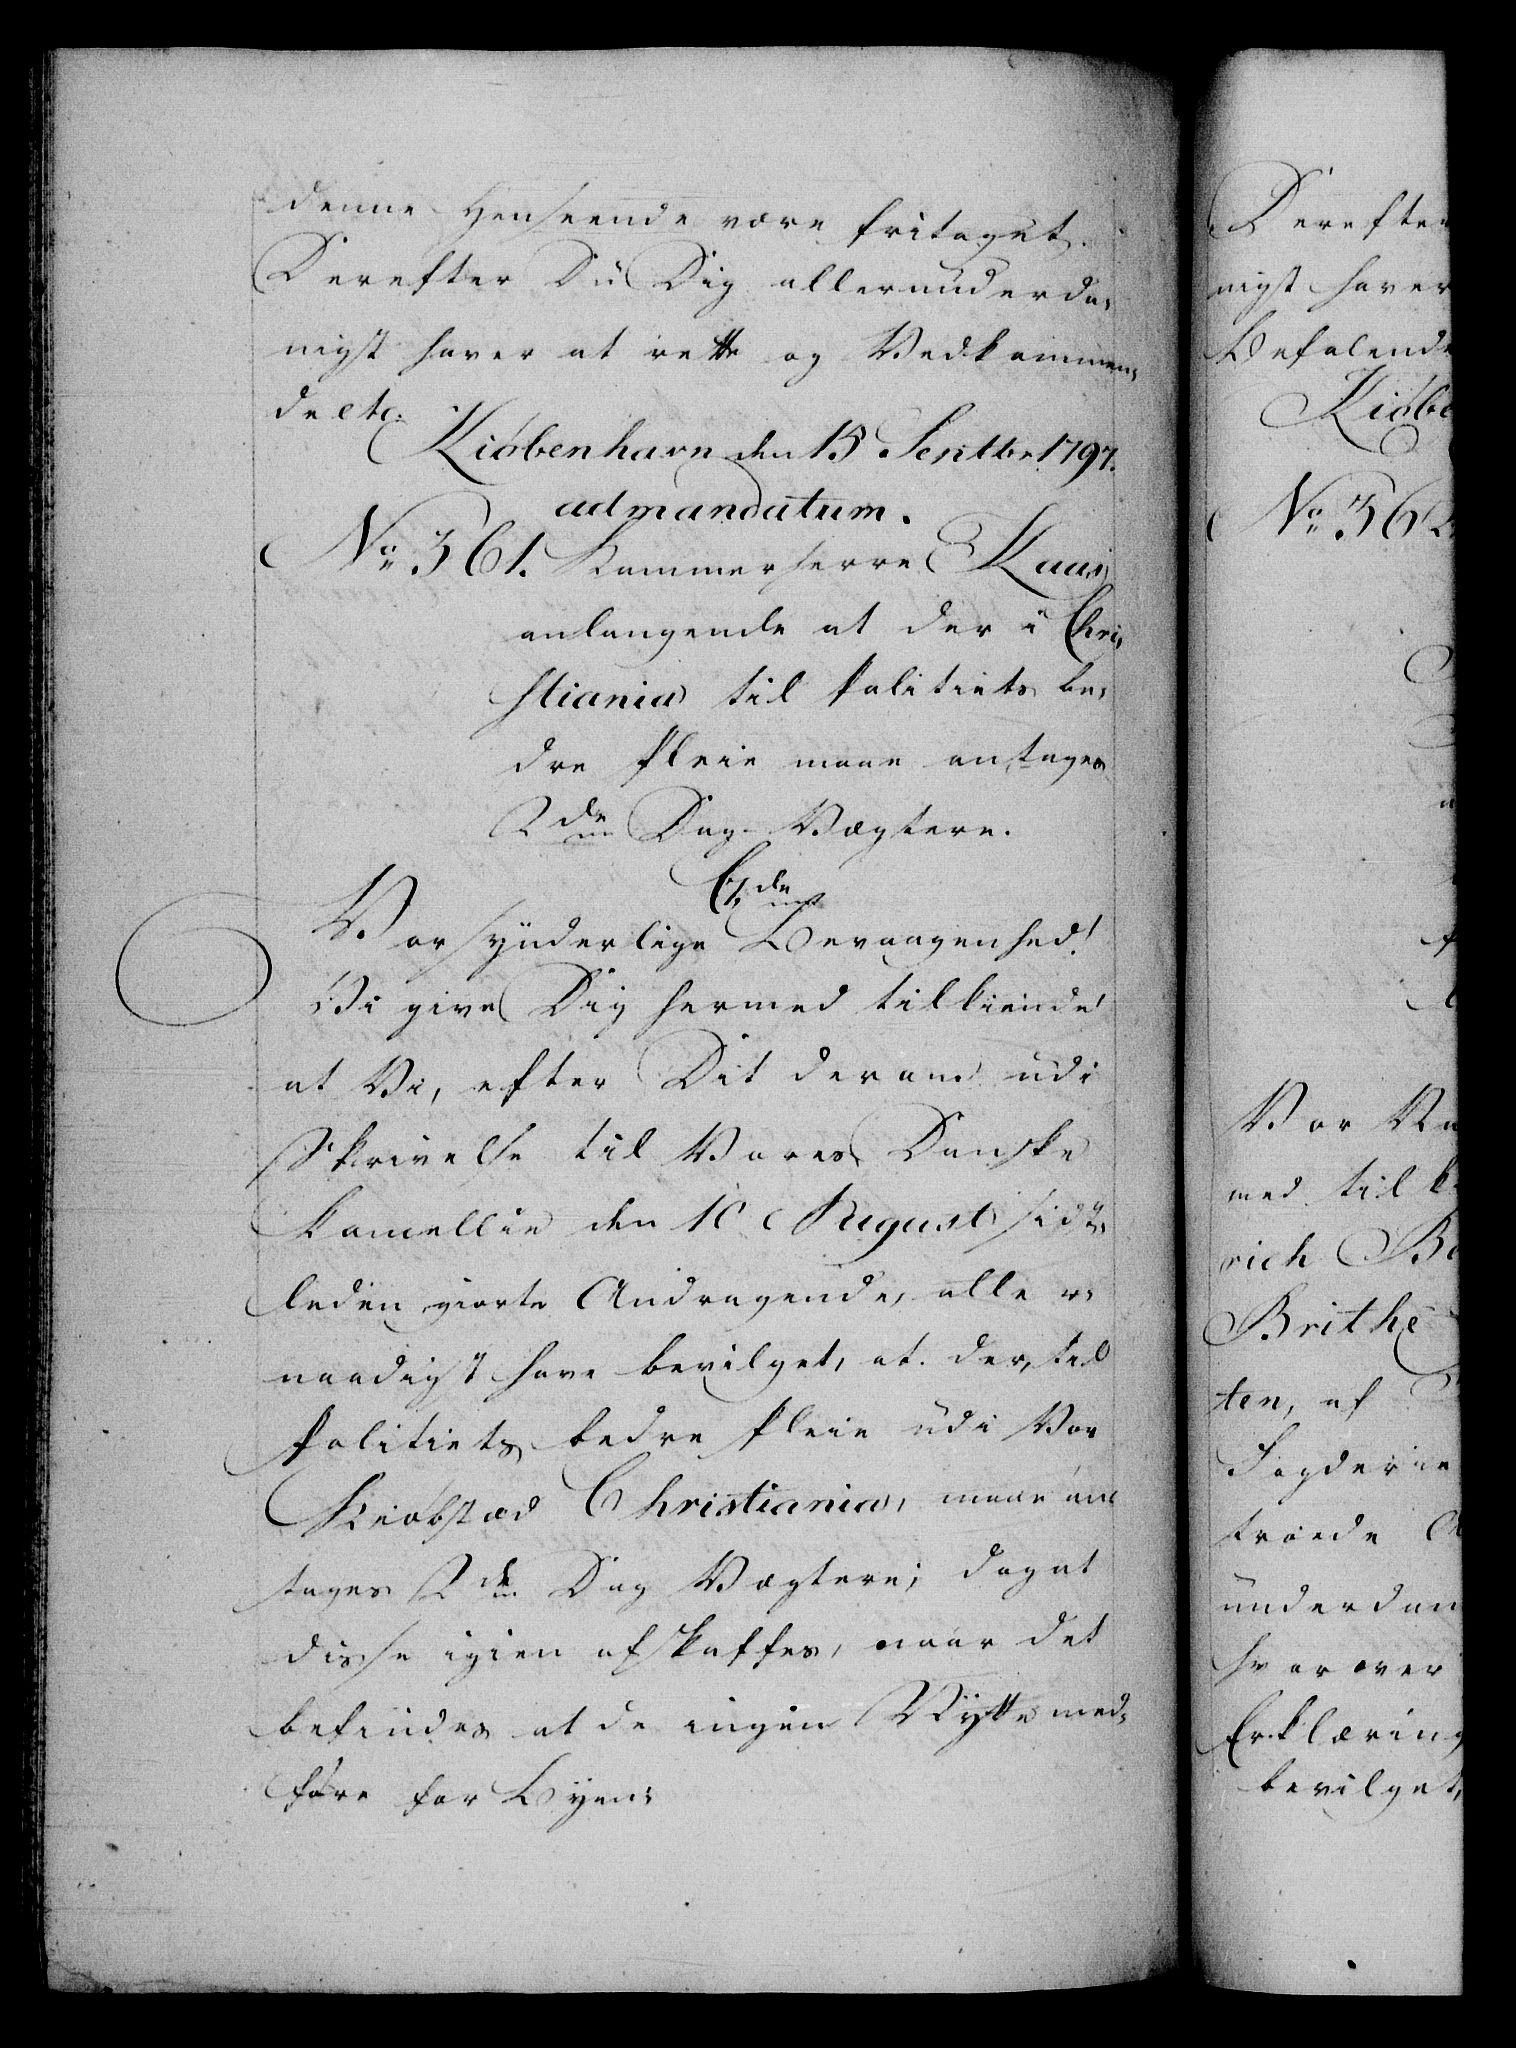 denne Henseende være fritaget.
Derefter Du Dig allerunderda,
nigst haver at rette og Vedkommen,
de etc.
Kiøbenhavn den 15 Septbr 1797.
ad mandatum.
No 361. Kammerherre Kaas
anlangende at der i Chri,
stiania til Politiets be,
dre Pleie maae antages
2de Dag-Vægtere.
C. 7de
Vor synderlige Bevaagenhed!
Vi give Dig hermed tilkiende
at Vi, efter Dit derom udi
Skrivelse til Vores Danske
Kancellie den 10 August sidst,
leden giorte Andragende, aller,
naadigst have bevilget, at der, til
Politiets bedre Pleie udi Vor
Kiøbstæd Christiania, maae an
tages 2de Dag Vægtere; dog at
disse igien afskaffes, naar det
befindes at de ingen Nytte med,
føre for Byen:
Derefter
nigst haver
Befalende
Kiøbe
No 362
Vor Na
med til k
rich Be
Brithe
ten, af
Fogderie
troede A
underdan
hvorover
Erklæring
bevilget,